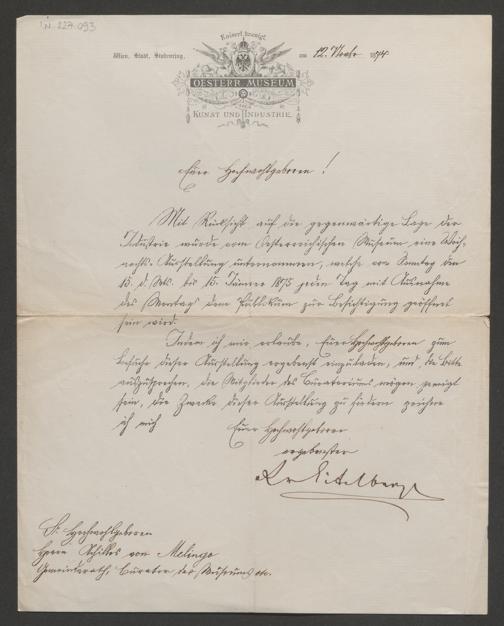 IN. 227.093
Kaiserl. königl.
Wien, Stadt, Stubenring, am 12. Novbr 1874
OESTERR. MUSEUM
FÜR
KUNST UND INDUSTRIE.
Euer Hochwohlgeboren!
Mit Rücksicht auf die gegenwärtige Lage der
Industrie wurde vom Oesterreichischen Museum eine Weih-
nachts-Ausstellung unternommen, welche von Sonntag den
15. d. Mts. bis 15. Jänner 1875 jeden Tag mit Ausnahme
des Montag dem Publikum zur Besichtigung geöffnet
sein wird.
Indem ich mir erlaube, Euer Hochwohlgeboren zum
Besuche dieser Ausstellung ergebenst einzuladen, und die Bitte
auszusprechen, die Mitglieder des Curatoriums mögen geneigt
sein, die Zwecke dieser Ausstellung zu fördern zeichne
ich mich
Euer Hochwohlgeboren
ergebenster
R v Eitelberger
Sr. Hochwohlgeboren
Herrn Achilles von Melingo
Gemeinderath, Curator des Museums etc.